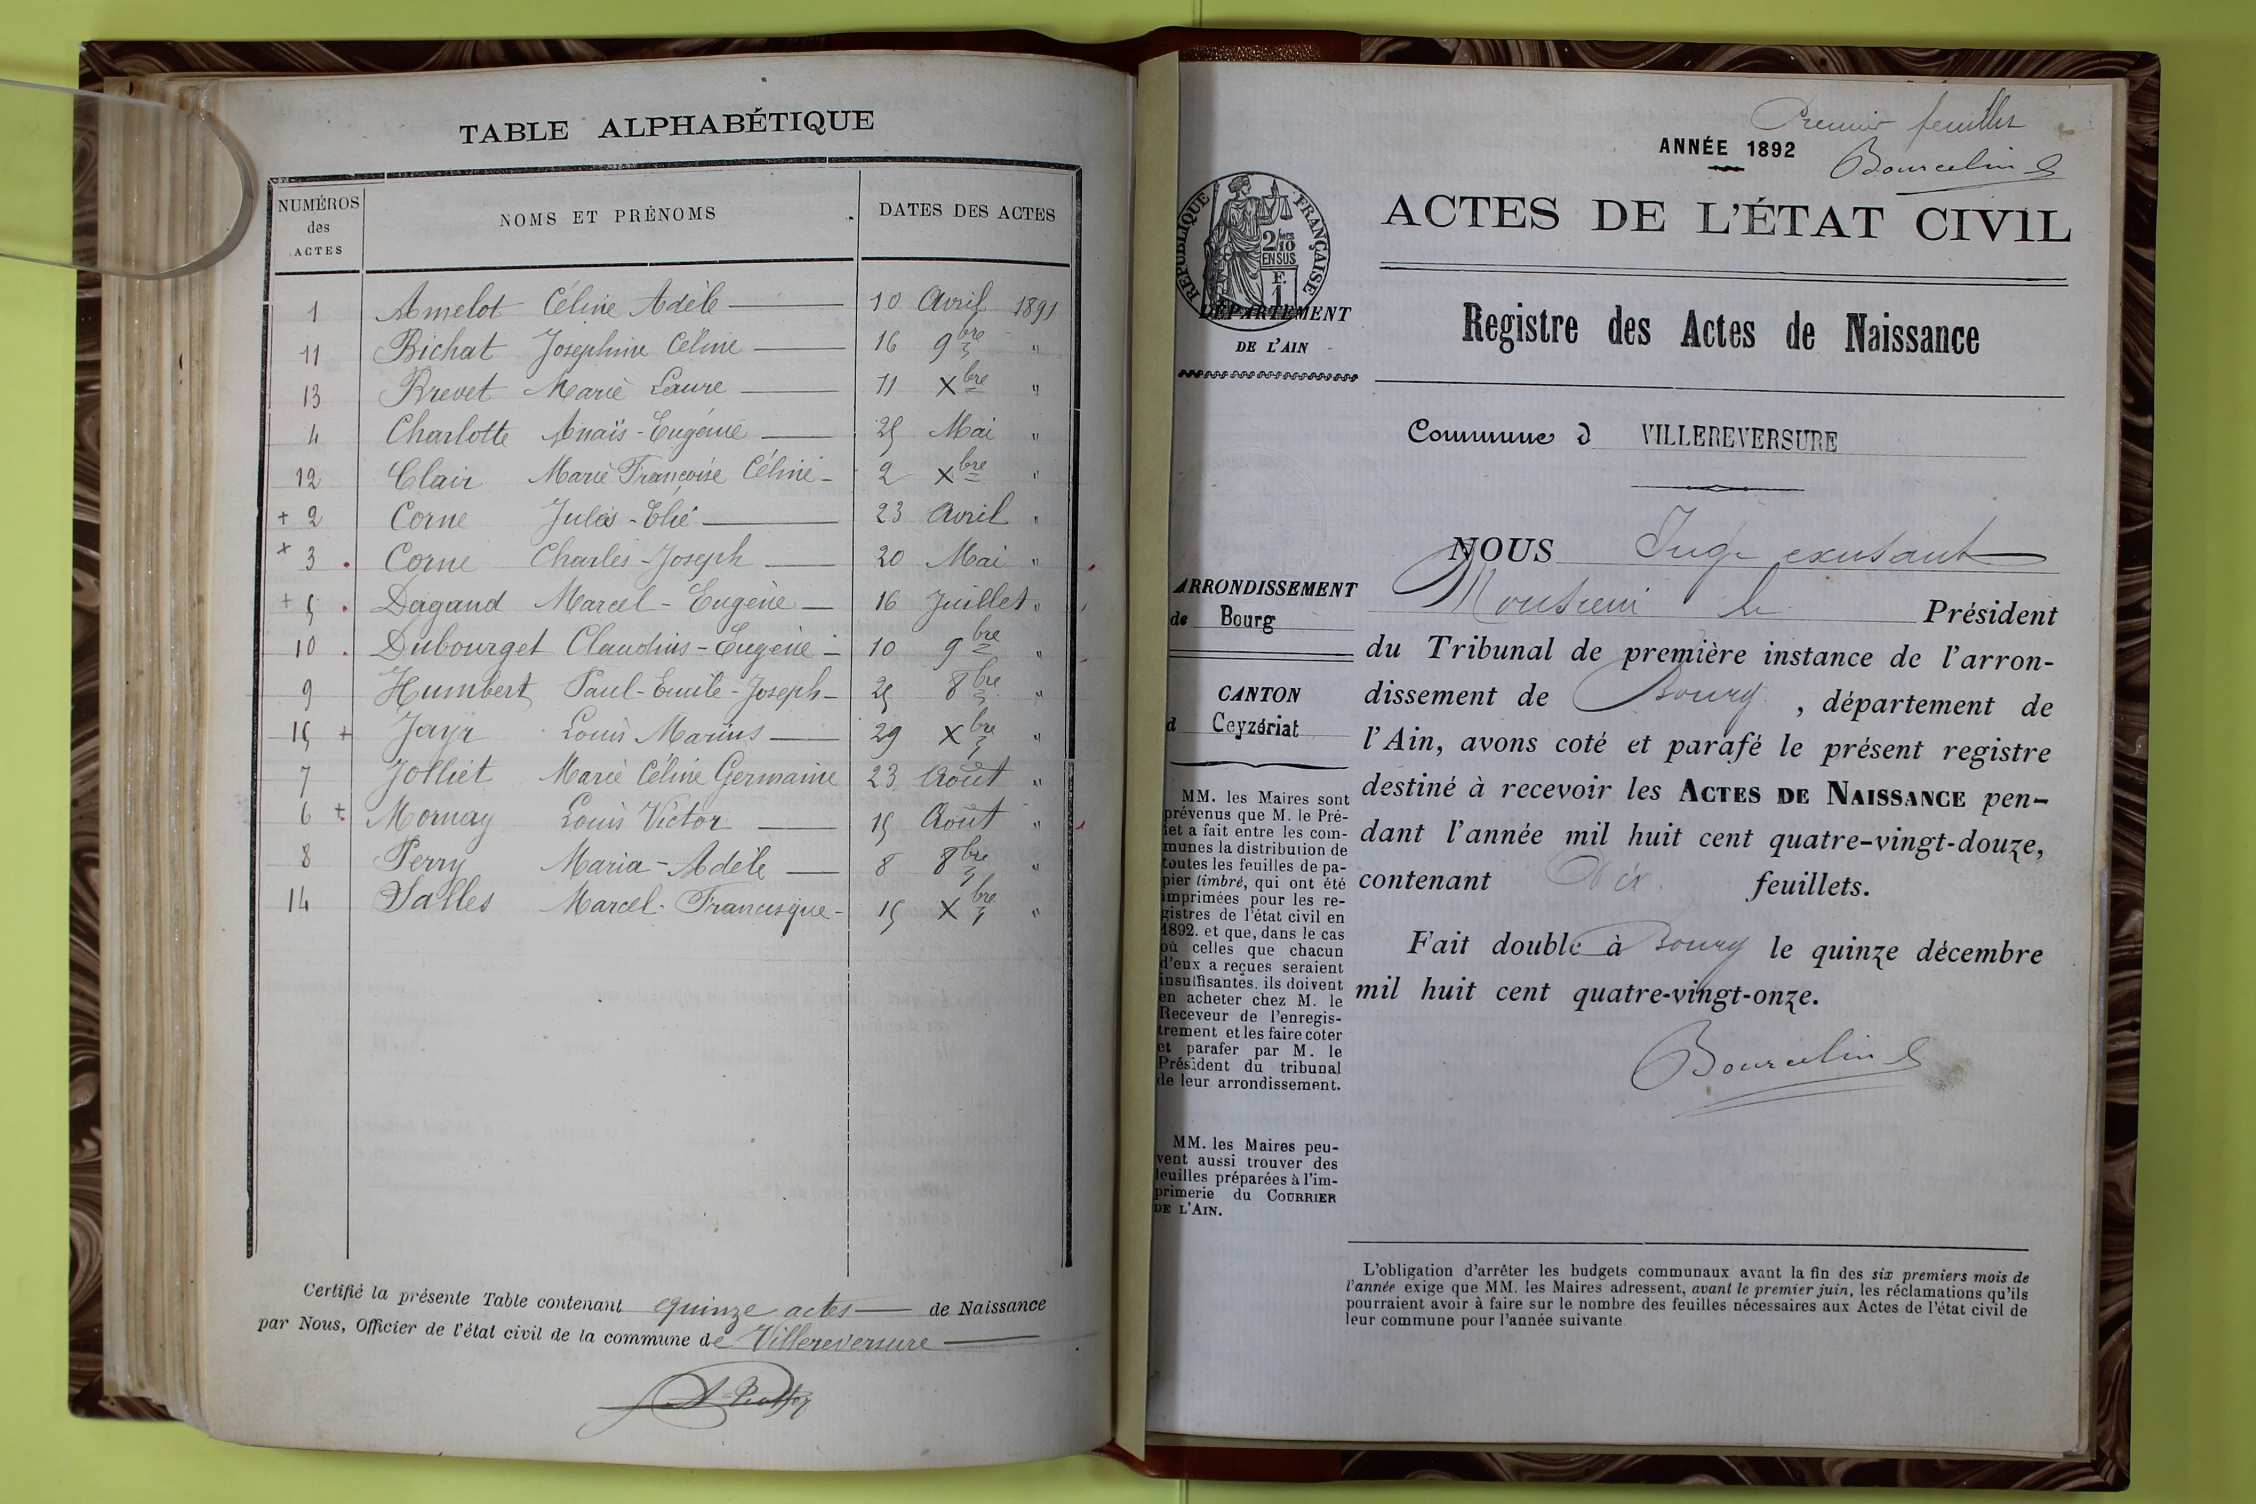 TABLE ALPHABÉTIQUE
NUMÉROS des ACTES NOMS ET PRÉNOMS DATES DES ACTES
1 Amelot Céline Adèle 10 Avril 1891
11 Bichat Joséphine Céline 16 9bre "
13 Brevet Marie Laure 11 Xbre "
4 Charlotte Anaïs-Eugénie 25 Mai "
12 Clair Marie Françoise Céline 2 Xbre "
+ 2 Corne Jules-Elie 23 Avril "
x 3 Corne Charles-Joseph 20 Mai "
+ 5 Dagand Marcel-Eugène 16 Juillet "
10 Dubourget Claudius-Eugène 10 9bre "
9 Humbert Paul-Emile-Joseph 25 8bre "
15 + Jayr Louis Marius 29 Xbre "
7 Jolliet Marie Céline Germaine 23 Août "
6 + Mornay Louis Victor 15 Août "
8 Perry Maria-Adèle 8 8bre "
14 Salles Marcel-Francisque 15 Xbre "
Certifié la présente Table contenant quinze actes de Naissance
par Nous, Officier de l'état civil de la commune de Villereversure
Premier feuillet
ANNÉE 1892
Bourcelin
RÉPUBLIQUE FRANÇAISE
2/10 EN SUS
E
1
ACTES DE L'ÉTAT CIVIL
DÉPARTEMENT
DE L'AIN
Registre des Actes de Naissance
Commune d VILLEREVERSURE
ARRONDISSEMENT
de Bourg
CANTON
d Ceyzériat
MM. les Maires sont
prévenus que M. le Pré-
fet a fait entre les com-
munes la distribution de
toutes les feuilles de pa-
pier timbré, qui ont été
imprimées pour les re-
gistres de l'état civil en
1892. et que, dans le cas
où celles que chacun
d'eux a reçues seraient
insuffisantes, ils doivent
en acheter chez M. le
Receveur de l'enregis-
trement et les faire coter
et parafer par M. le
Président du tribunal
de leur arrondissement.
MM. les Maires peu-
vent aussi trouver des
feuilles préparées à l'im-
primerie du COURRIER
DE L'AIN.
NOUS Juge
Monsieur le Président
du Tribunal de première instance de l'arron-
dissement de Bourg, département de
l'Ain, avons coté et parafé le présent registre
destiné à recevoir les ACTES DE NAISSANCE pen-
dant l'année mil huit cent quatre-vingt-douze,
contenant Dix feuillets.
Fait double à Bourg le quinze décembre
mil huit cent quatre-vingt-onze.
Bourcelin
L'obligation d'arrêter les budgets communaux avant la fin des six premiers mois de
l'année exige que MM. les Maires adressent, avant le premier juin, les réclamations qu'ils
pourraient avoir à faire sur le nombre des feuilles nécessaires aux Actes de l'état civil de
leur commune pour l'année suivante